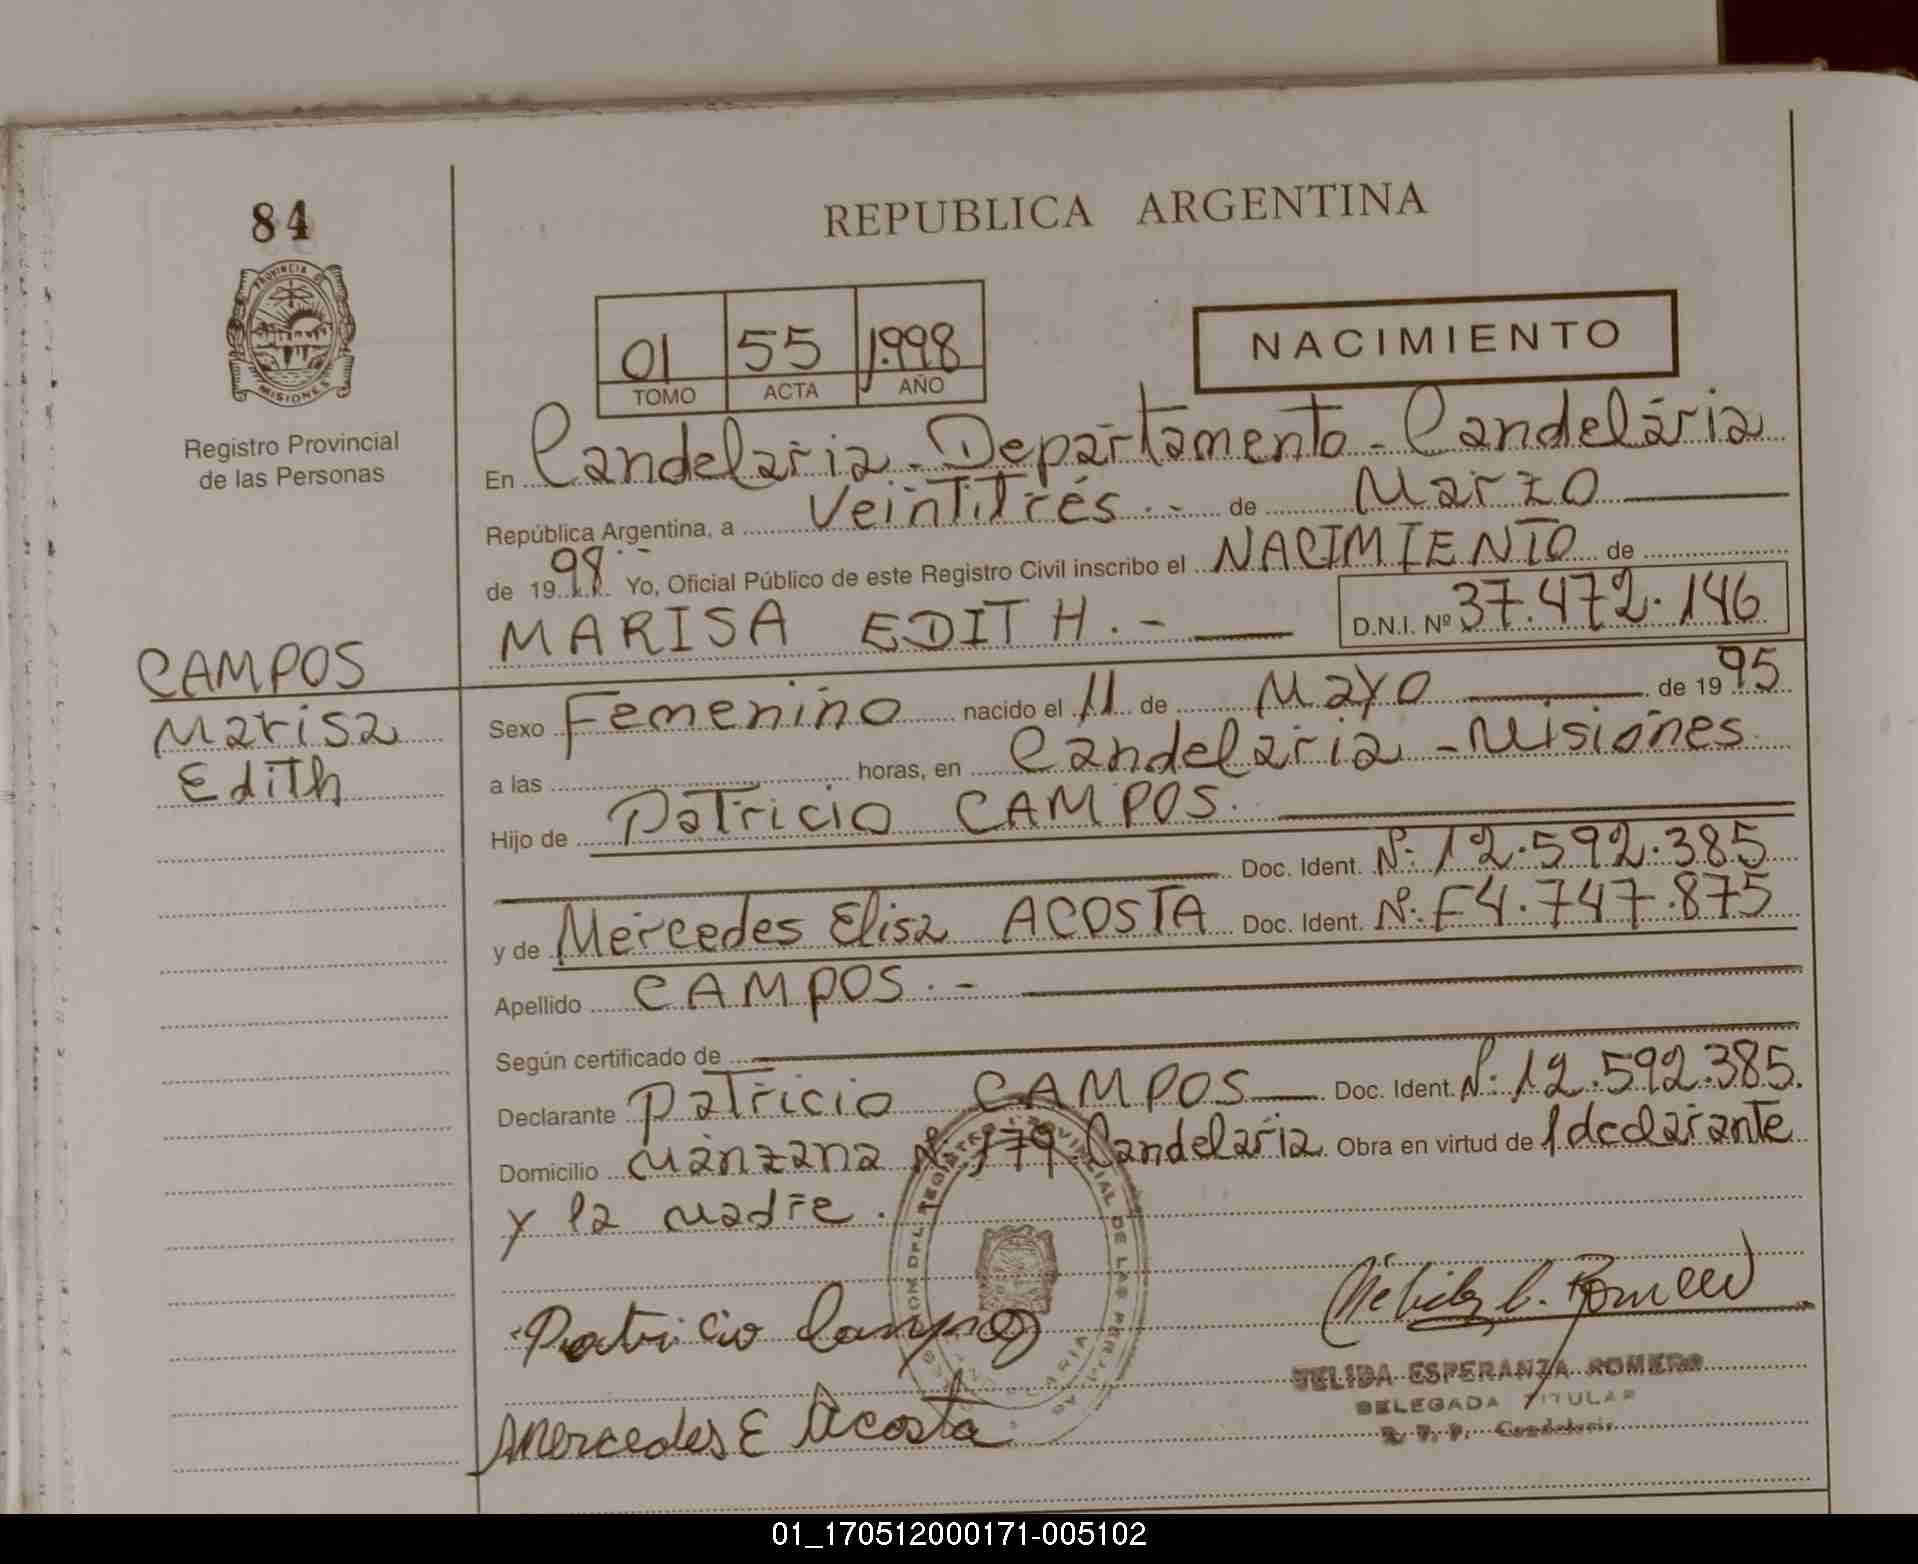 84
REPUBLICA ARGENTINA
PROVINCIA DE MISIONES
Registro Provincial
de las Personas
01 55 1.998
TOMO ACTA AÑO
NACIMIENTO
En Candelaria - Departamento - Candelaria
República Argentina, a Veintitrés.- de Marzo
de 19 98.- Yo, Oficial Público de este Registro Civil inscribo el NACIMIENTO de
MARISA EDITH.- D.N.I. Nº 37.472.146
CAMPOS
Marisa
Edith
Sexo Femenino nacido el 11 de Mayo de 19 95
a las horas, en Candelaria - Misiones
Hijo de Patricio CAMPOS.
Doc. Ident. Nº: 12.592.385
y de Mercedes Elisa ACOSTA Doc. Ident. Nº: F4.747.875
Apellido CAMPOS.-
Según certificado de
Declarante Patricio CAMPOS Doc. Ident. Nº: 12.592.385.
Domicilio Manzana Nº 179 Candelaria Obra en virtud de l declarante
y la madre.
Patricio Campos
Mercedes E Acosta
Nélida E. Romero
NELIDA ESPERANZA ROMERO
DELEGADA TITULAR
R. P. P. Candelaria
01_170512000171-005102